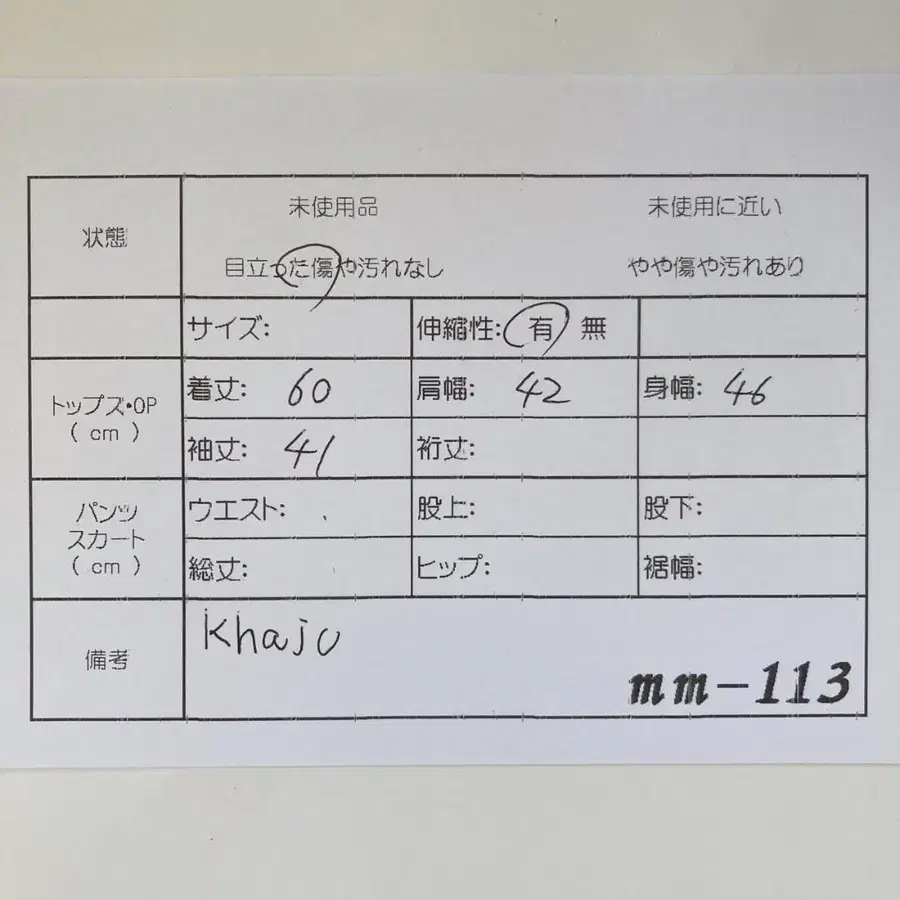 状態
未使用品 未使用に近い
目立った傷や汚れなし やや傷や汚れあり
サイズ: 伸縮性: 有 無
トップス・OP
( cm )
着丈: 60 肩幅: 42 身幅: 46
袖丈: 41 裄丈:
パンツ
スカート
( cm )
ウエスト: 股上: 股下:
総丈: ヒップ: 裾幅:
備考
Khaju
mm-113